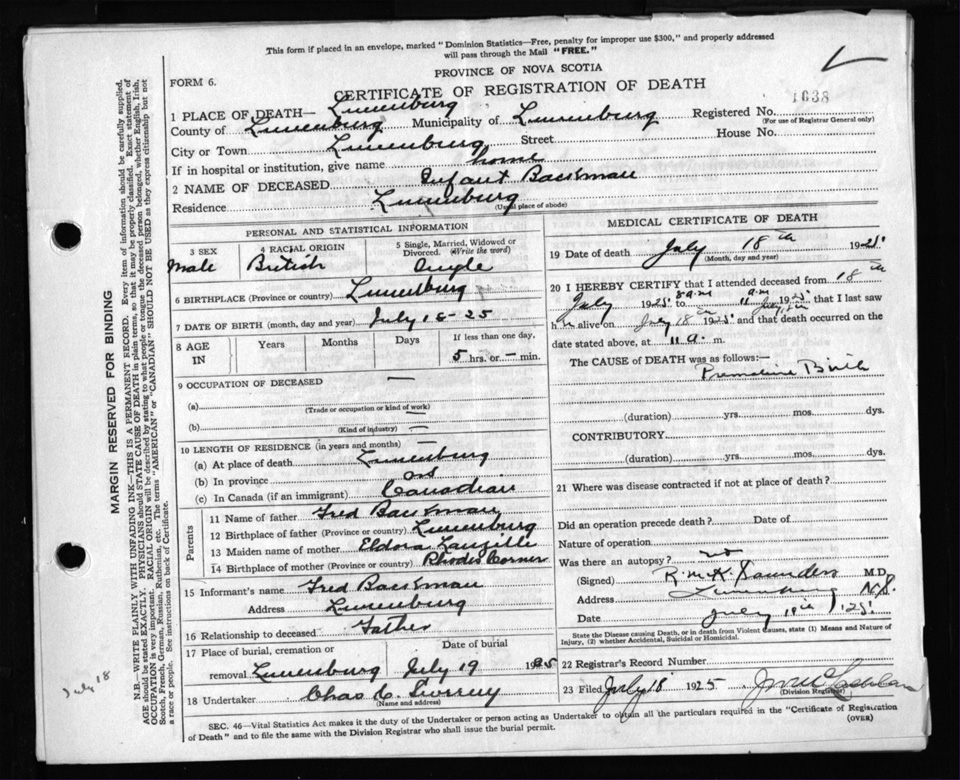 This form if placed in an envelope, marked "Dominion Statistics—Free, penalty for improper use $300," and properly addressed
will pass through the Mail "FREE."
PROVINCE OF NOVA SCOTIA
FORM 6.
CERTIFICATE OF REGISTRATION OF DEATH
1638
1 PLACE OF DEATH— Lunenburg
Registered No.
(For use of Registrar General only)
County of Lunenburg Municipality of Lunenburg
City or Town Lunenburg Street House No.
If in hospital or institution, give name home
2 NAME OF DECEASED Infant Backman
Residence Lunenburg
(Usual place of abode)
PERSONAL AND STATISTICAL INFORMATION
3 SEX 4 RACIAL ORIGIN 5 Single, Married, Widowed or Divorced. (Write the word)
Male British Single
6 BIRTHPLACE (Province or country) Lunenburg
7 DATE OF BIRTH (month, day and year) July 18-25
8 AGE IN Years Months Days If less than one day,
5 hrs. or — min.
9 OCCUPATION OF DECEASED —
(a)
(Trade or occupation or kind of work)
(b) —
(Kind of industry) —
10 LENGTH OF RESIDENCE (in years and months) —
(a) At place of death Lunenburg
(b) In province
(c) In Canada (if an immigrant) Canadian
Parents
11 Name of father Fred Backman
12 Birthplace of father (Province or country) Lunenburg
13 Maiden name of mother Eldora Langille
14 Birthplace of mother (Province or country) Rhodes Corner
15 Informant's name Fred Backman
Address Lunenburg
16 Relationship to deceased Father
17 Place of burial, cremation or removal Date of burial
Lunenburg July 19 1925
18 Undertaker Chas C.
(Name and address)
MEDICAL CERTIFICATE OF DEATH
19 Date of death July 18th 1925
(Month, day and year)
20 I HEREBY CERTIFY that I attended deceased from 18th
July 1925 8 a.m to 11 a.m July 18th 1925 that I last saw
him alive on July 18th 1925 and that death occurred on the
date stated above, at 11 a. m.
The CAUSE OF DEATH was as follows:—
Premature Birth
(duration) yrs. mos. dys.
CONTRIBUTORY
(duration) yrs. mos. dys.
21 Where was disease contracted if not at place of death?
Did an operation precede death? Date of
Nature of operation
Was there an autopsy? no
(Signed) R. McK. Saunders M.D.
Address Lunenburg N.S.
Date July 19th 1925
State the Disease causing Death, or in death from Violent Causes, state (1) Means and Nature of
Injury, (2) whether Accidental, Suicidal or Homicidal.
22 Registrar's Record Number
23 Filed July 18 1925
(Division Registrar)
SEC. 46—Vital Statistics Act makes it the duty of the Undertaker or person acting as Undertaker to obtain all the particulars required in the "Certificate of Registration
of Death" and to file the same with the Division Registrar who shall issue the burial permit.
(OVER)
MARGIN RESERVED FOR BINDING
N.B.—WRITE PLAINLY WITH UNFADING INK—THIS IS A PERMANENT RECORD. Every item of information should be carefully supplied.
AGE should be stated EXACTLY. PHYSICIANS should STATE CAUSE OF DEATH in plain terms, so that it may be properly classified. Exact statement of
OCCUPATION is very important. RACIAL ORIGIN will be described by stating to what people or tongue the deceased person belonged, whether English, Irish,
Scotch, French, German, Russian, Ruthenian, etc. The terms "AMERICAN" or "CANADIAN" SHOULD NOT BE USED as they express citizenship but not
a race or people. See instructions on back of Certificate.
July 18